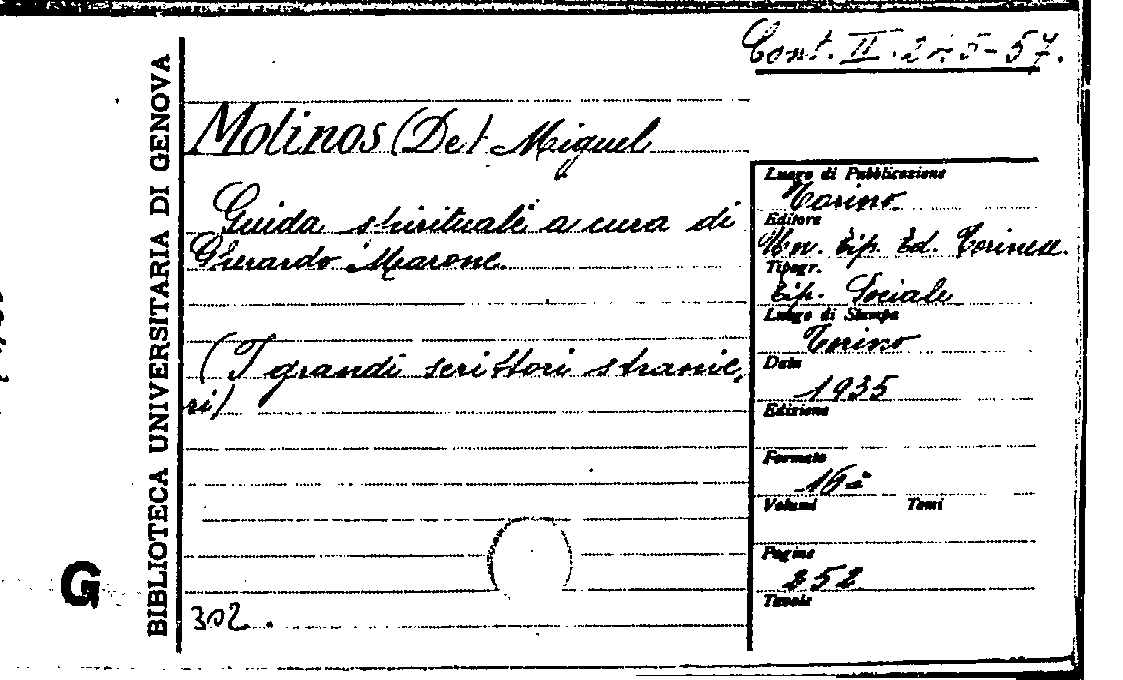 Cont. II. 245-57.
BIBLIOTECA UNIVERSITARIA DI GENOVA
Molinos (De) Miguel
Guida spirituale a cura di
Gherardo Marone.
(I grandi scrittori stranie,
ri)
302.
G
Luogo di Pubblicazione
Torino
Editore
Un. Tip. Ed. Torinese.
Tipogr.
Tip. Sociale
Luogo di Stampa
Torino
Data
1935
Edizione
Formato
16°
Volumi Tomi
Pagine
252
Tavole